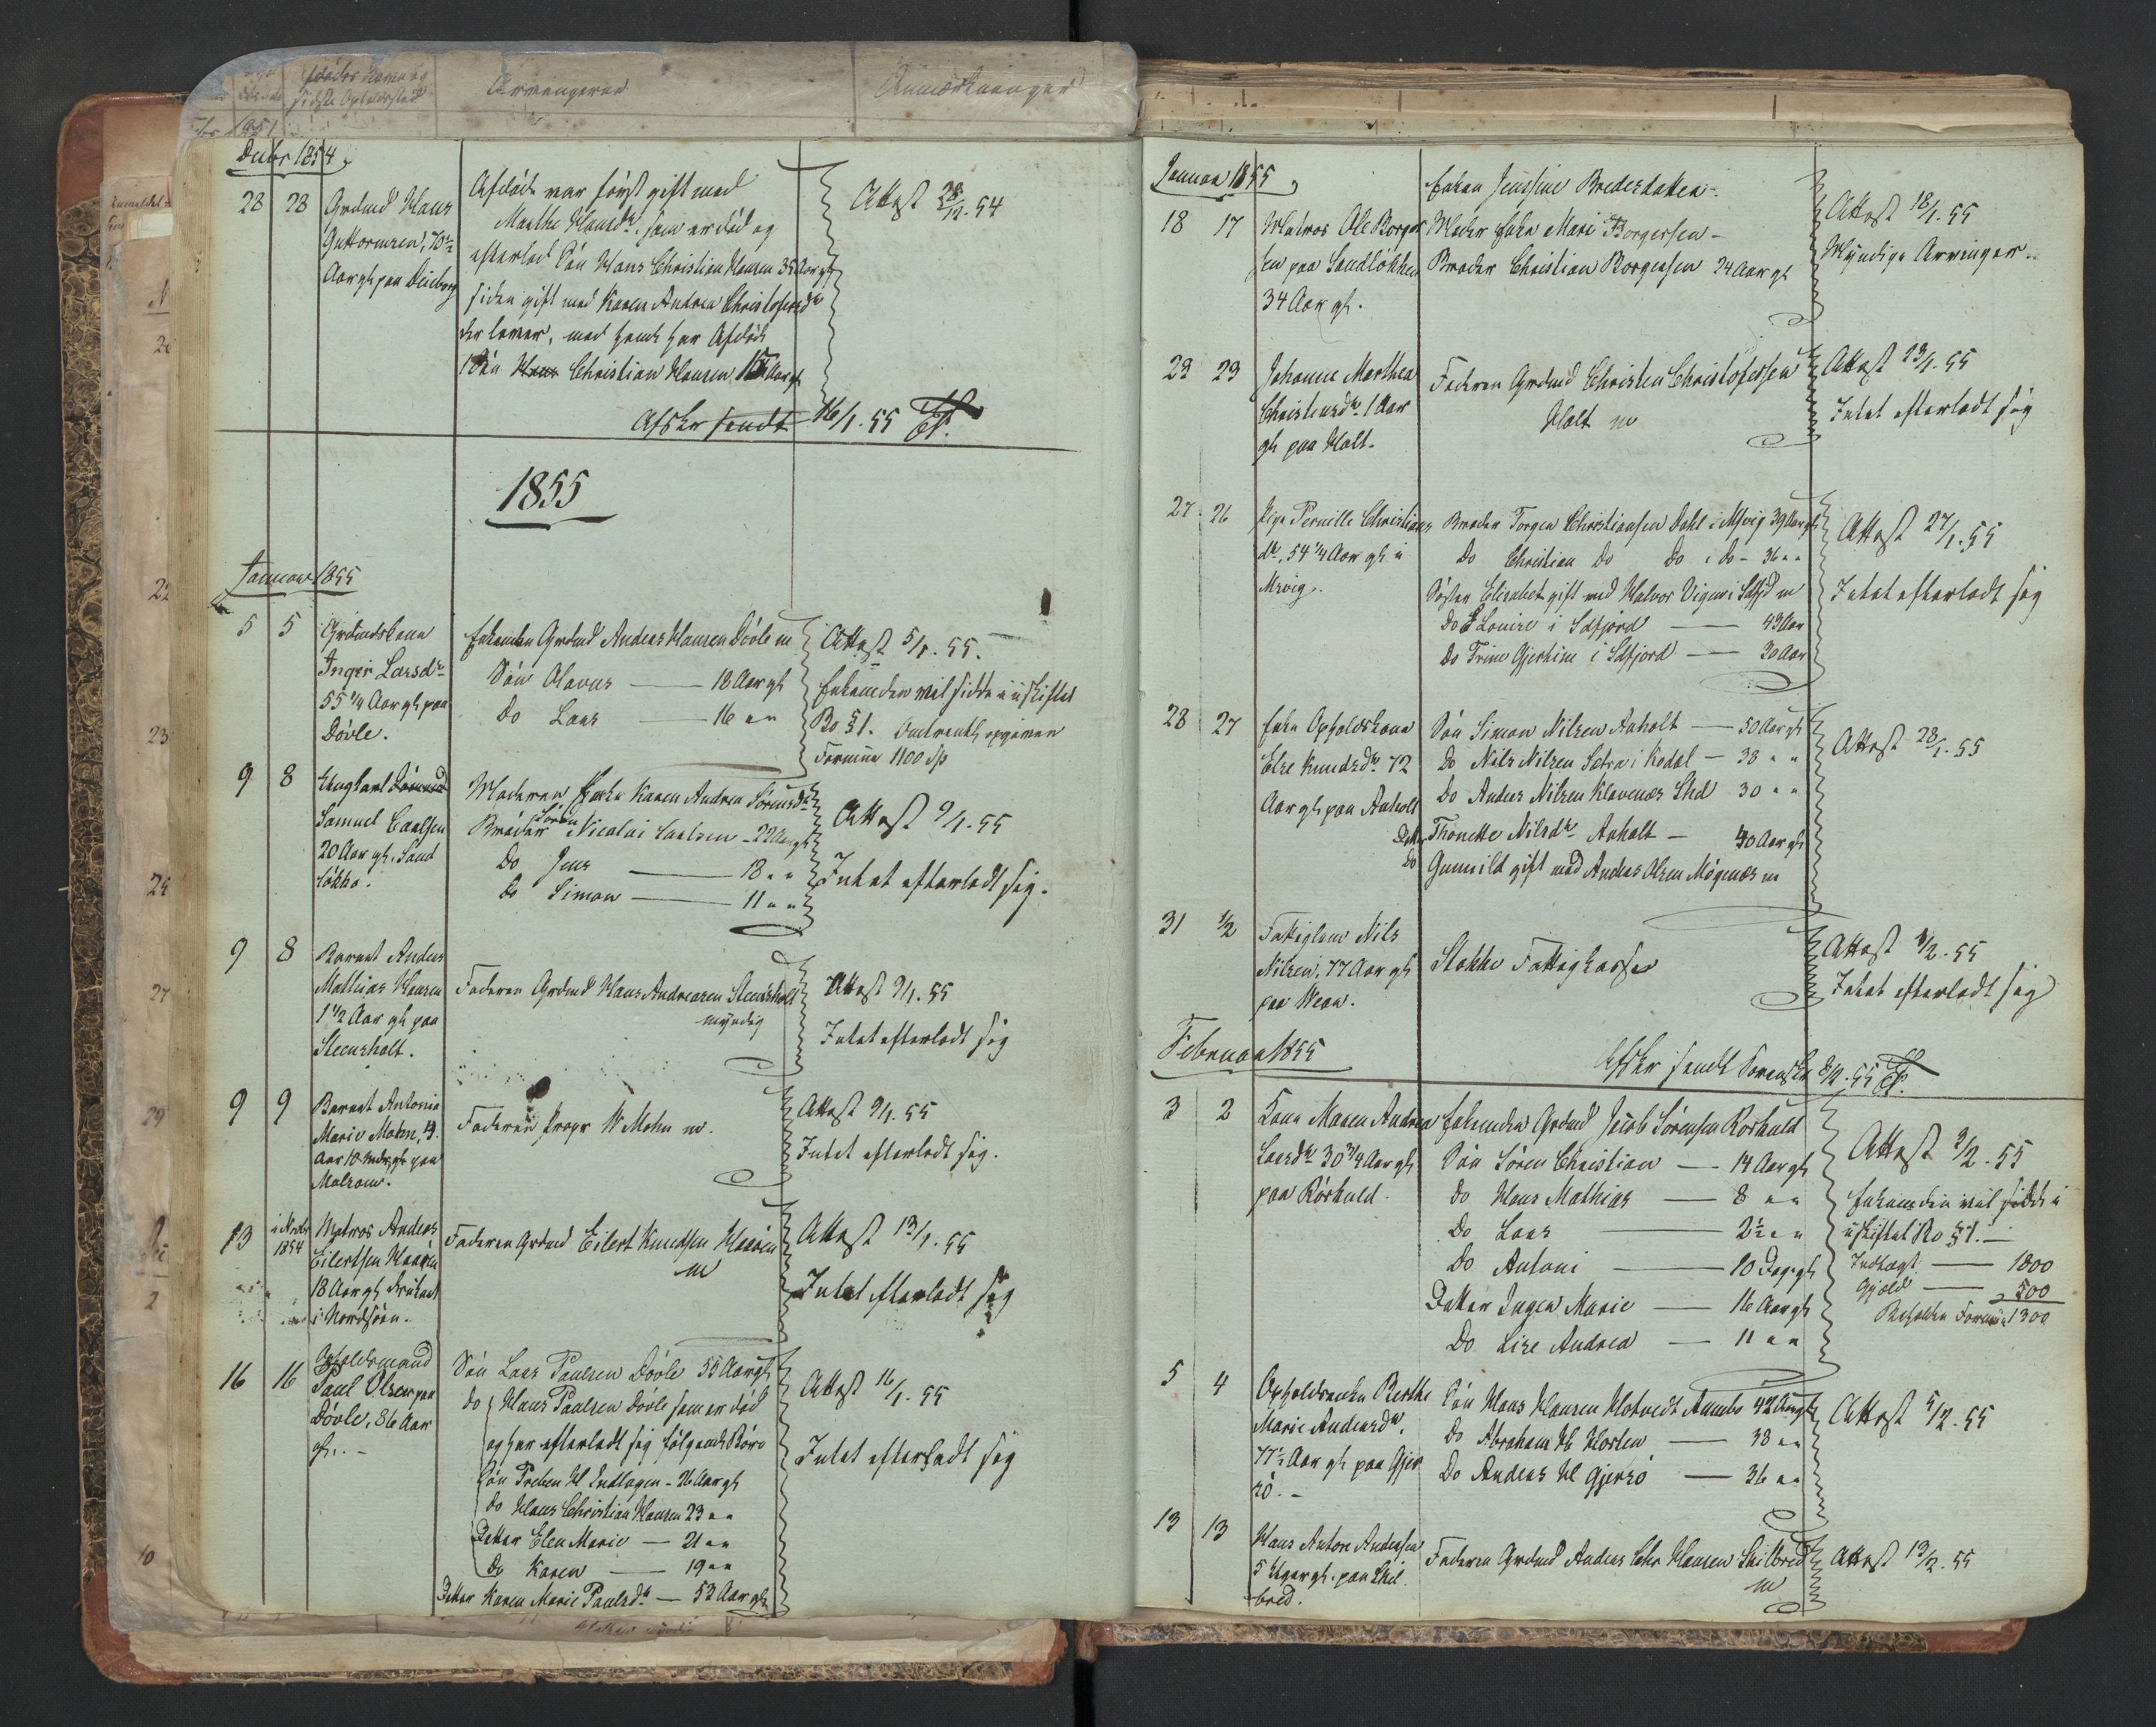 Afdødes Navn og
sidste Opholdssted
Arvingerne
Anmærkninger
1851
Decbr 1854
28 28 Grdmd Hans
Guttormsen, 70½
Aar gl paa
Afdøde var først gift med
Marthe Hansdr. som er død og
efterlod Søn Hans Christian Hansen 35 Aar gl
siden gift med Karen Andrea Christofersdr
der lever, med hende har Afdøde
1 Søn Hans Christian Hansen 15 Aar gl
Attest 28/12. 54
Afskr sendt 16/1. 55
1855
Januar 1855
5 5 Grdmdskone
Inger Larsdr
55 1/4 Aar gl paa
Døvle.
Enkemden Grdmd Anders Hansen Døvle m
Søn Olavus — 18 Aar gl
Do Lars — 16 " "
Attest 5/1. 55.
Enkemden vil sidde i uskiftet
Bo §1. Omtrentl opgiven
Formue 1100 Sp
9 8 Ungkarl
Samuel Carlsen
20 Aar gl. Sand
løkke.
Moderen Enke Karen Andrea Sørensdr
Brødre Søren Nicolai Carlsen - 22 Aar gl
Do Jens — 18 " "
Do Simon — 11 " "
Attest 9/1. 55
Intet efterladt sig.
9 8 Barnet Anders
Mathias Hansen
1 1/2 Aar gl paa
Steensholt.
Faderen Grdmd Hans Andreasen Steensholt
myndig
Attest 9/1. 55
Intet efterladt sig
9 9 Barnet Antonia
Marie Mohn,
Aar 10 Mdr gl paa
Melsom.
Faderen Propr Mohn m.
Attest 9/1. 55
Intet efterladt sig.
13 1854 Matros Anders
Eilertsen Haaøen
18 Aar gl druknet
i Nordsøen.
Faderen Grdmd Eilert Knudsen Haaøen
m
Attest 13/1. 55
Intet efterladt sig
16 16 Opholdsmand
Paul Olsen paa
Døvle, 86 Aar
gl. -
Søn Lars Paulsen Døvle 55 Aar gl
Do Hans Paulsen Døvle som er død
og har efterladt sig følgende Børn
Søn Preben H Indlagen - 26 Aar gl
Do Hans Christian Hansen 23 " "
Datter Elen Marie — 21 " "
Do Karen — 19 " "
Datter Karen Marie Paulsdr — 53 Aar gl
Attest 16/1. 55
Intet efterladt sig
Januar 1855
18 17 Matros Ole Borger
sen paa Sandløkken
34 Aar gl.
Enken Jensine
Moder Enke Mari Borgersen -
Broder Christian Borgersen 24 Aar gl
Attest 18/1. 55
Myndige Arvinger.
23 23 Johanne Marthea
Christensdr. 1 Aar
gl paa Holt.
Faderen Grdmd Christen Christofersen
Holt m
Attest 23/1. 55
Intet efterladt sig
27 26 Pige Pernille Christians
dr, 54 1/4 Aar gl i
Melsvig.
Broder Torger Christiansen Dahl i 39 Aar gl
Do Christian Do Do i Do - 36 " "
Søster Elisabet gift med Halvor i m
Do Louise i Sdfjord — 43 Aar
Do Trine Gjerhine i Sdfjord — 30 Aar
Attest 27/1. 55
Intet efterladt sig
28 27 Enke Opholdskone
Else Knudsdr. 72
Aar gl paa Anholt
Søn Simon Nilsen Anholt — 50 Aar gl
Do Nils Nilsen Sætra i Kodal — 38 " "
Do Anders Nilsen Klavenæs 30 " "
Datter Thonette Nilsdr Anholt — 40 Aar gl
Do Gunnild gift med Anders Olsen Møgenæs m
Attest 28/1. 55
31 1/2 Fattiglem Nils
Nilsen, 77 Aar gl
paa Wear.
Stokke Fattigkasse
Attest 1/2. 55
Intet efterladt sig
Afskr sendt Sorenskr 8/2. 55
Februar 1855
3 2 Kone Maren Andrea
Larsdr 30 3/4 Aar gl
paa Rørkuld.
Enkemden Grdmd Jacob Sørensen Rørkuld
Søn Søren Christian — 14 Aar gl
Do Hans Mathias — 8 " "
Do Lars — 2½ " "
Do Antoni — 10 Dage gl
Datter Inger Marie — 16 Aar gl
Do Lise Andrea — 11 " "
Attest 3/2. 55
Enkemden vil sidde i
uskiftet Bo §1. —
Indtægt — 1800
Gjæld — 500
Beholden Formue 1300
5 4 Opholdsenke Berthe
Marie Andersdr,
77½ Aar gl paa Gjer
sø. -
Søn Hans Hansen Hotvedt Annebo 42 Aar gl
Do Abraham H Horten — 38 " "
Do Anders H Gjersø — 36 " "
Attest 5/2. 55
13 13 Hans Anton Andersen
5 Uger gl. paa Skil
bred.
Faderen Grdmd Anders Chr Hansen Skilbred
m
Attest 13/2. 55